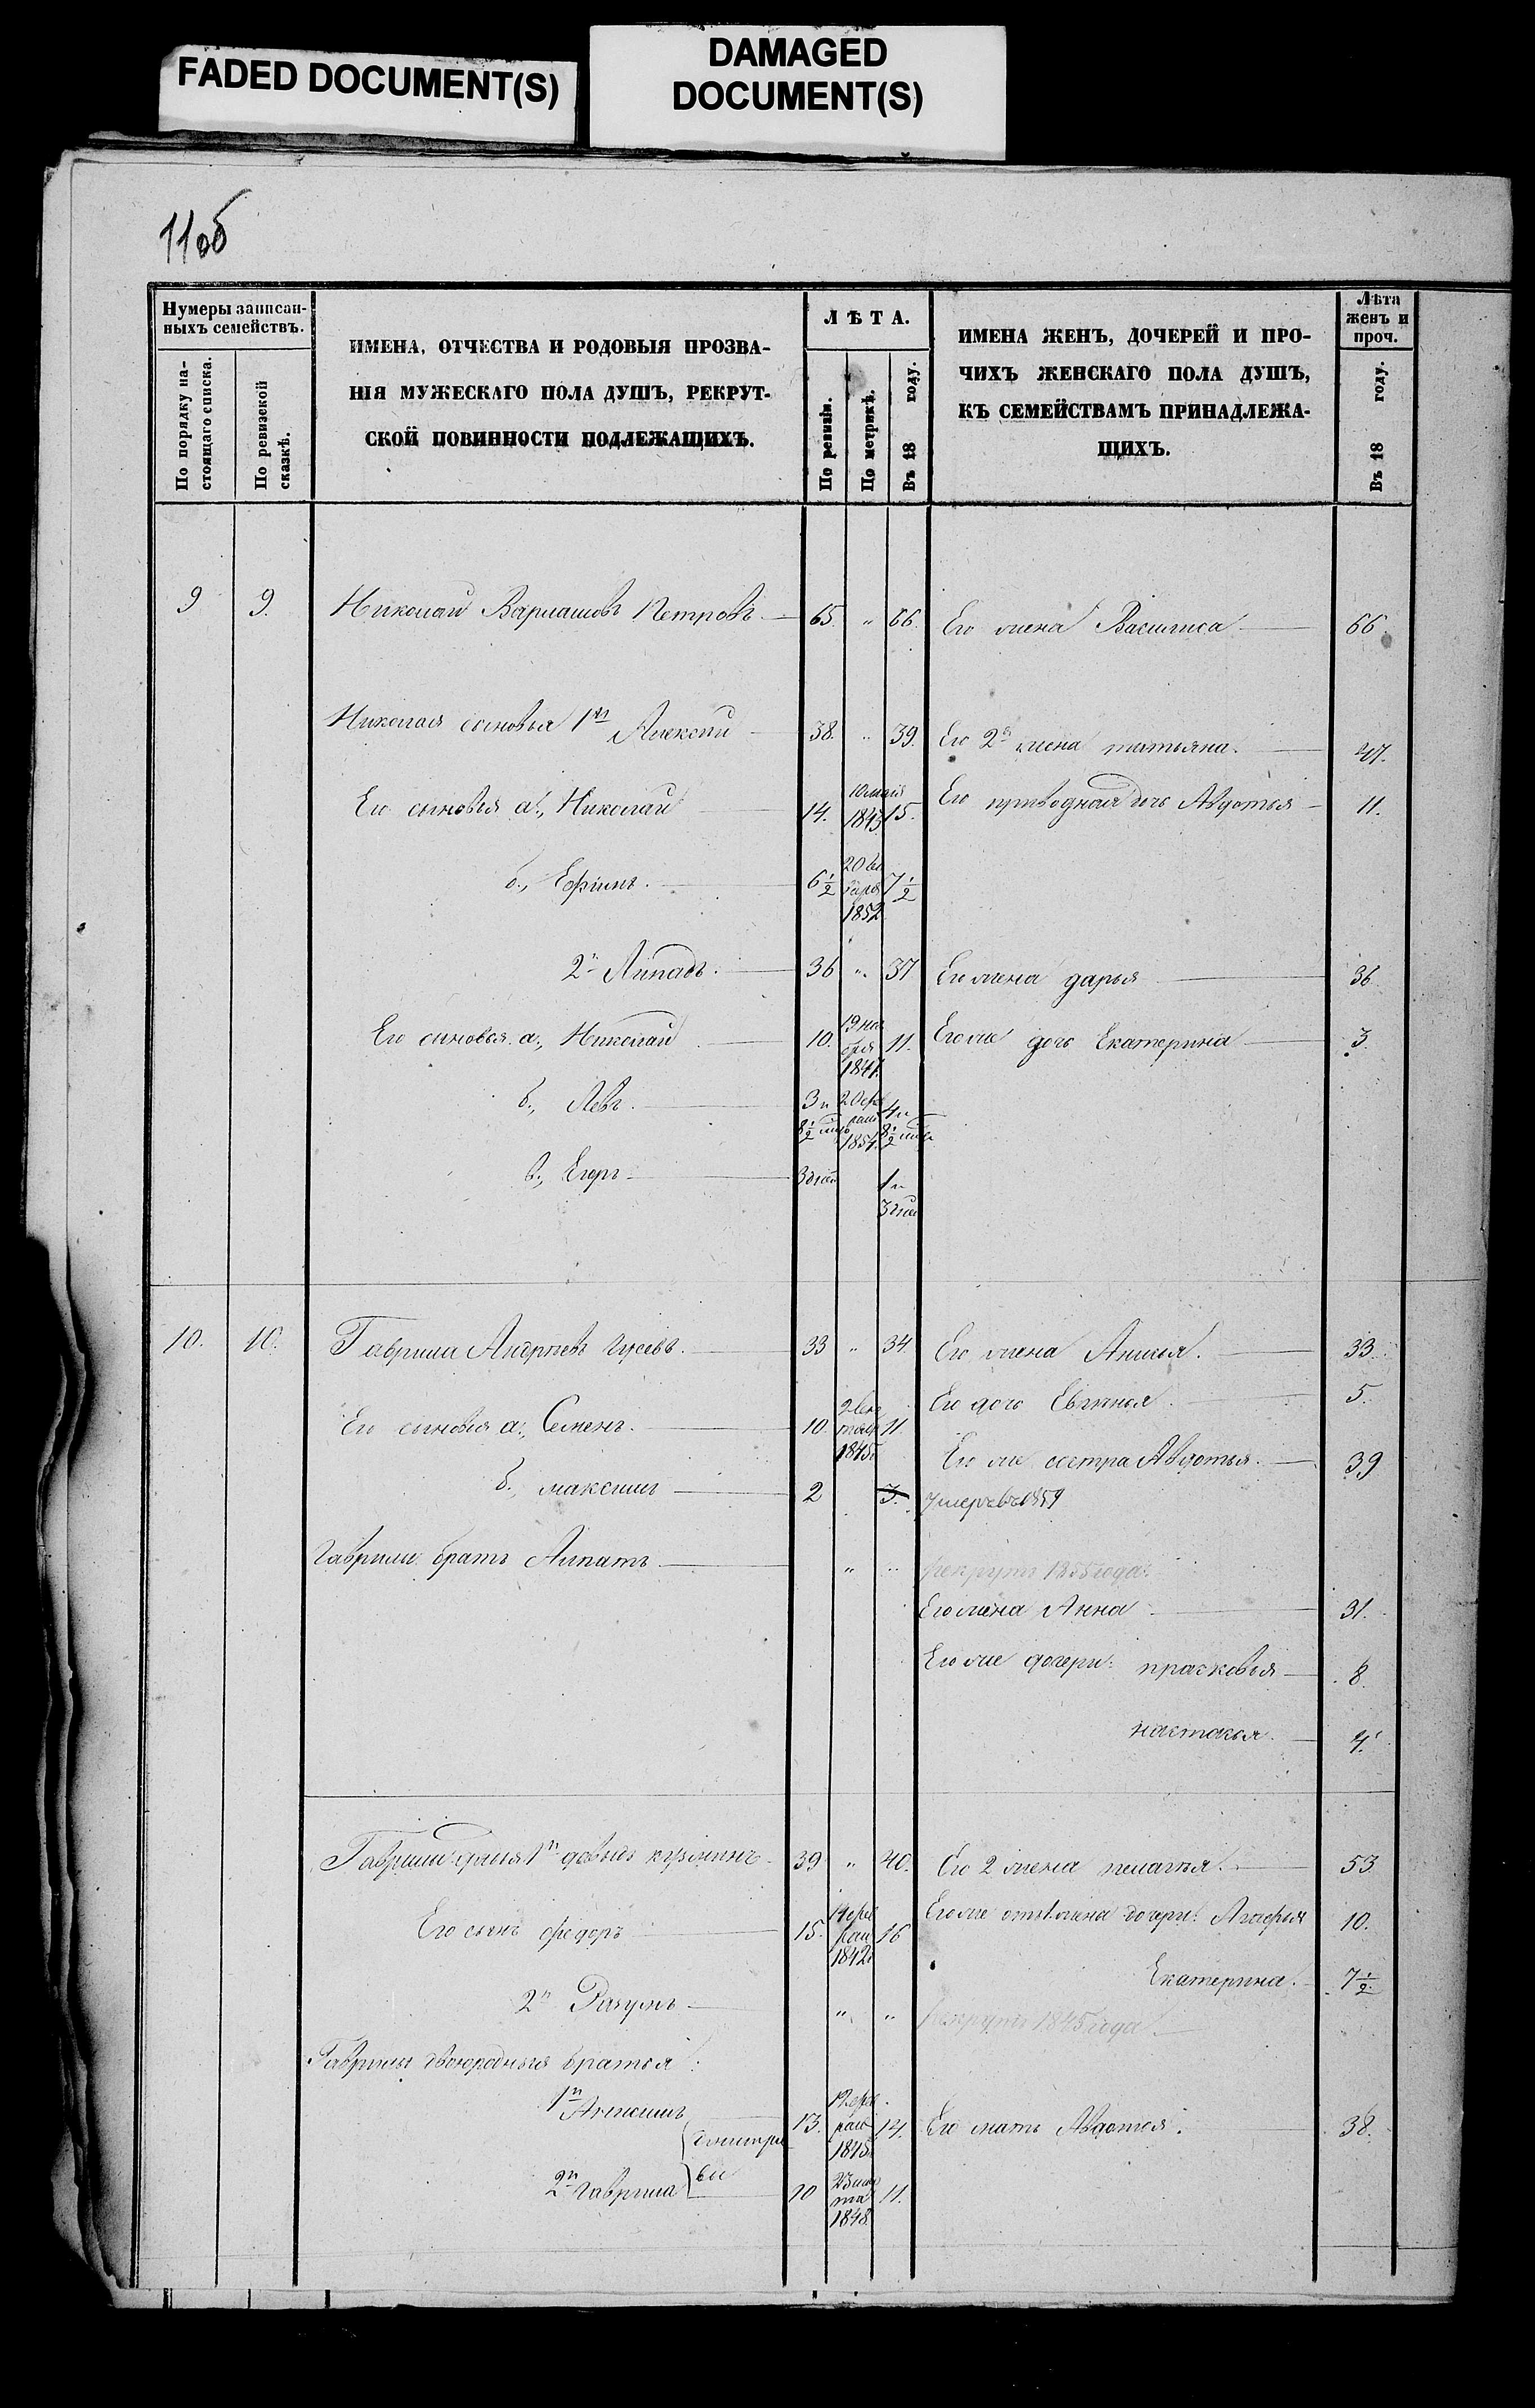 FADED DOCUMENT(S)
DAMAGED
DOCUMENT(S)
11об
Нумеры записан-
ныхъ семействъ.
По порядку на-
стоящаго списка.
По ревизской
сказкѣ.
ИМЕНА, ОТЧЕСТВА И РОДОВЫЯ ПРОЗВА-
НІЯ МУЖЕСКАГО ПОЛА ДУШЪ, РЕКРУТ-
СКОЙ ПОВИННОСТИ ПОДЛЕЖАЩИХЪ.
ЛѢТА.
По ревизіи.
По метрикѣ.
Въ 18 году.
ИМЕНА ЖЕНЪ, ДОЧЕРЕЙ И ПРО-
ЧИХЪ ЖЕНСКАГО ПОЛА ДУШЪ,
КЪ СЕМЕЙСТВАМЪ ПРИНАДЛЕЖА-
ЩИХЪ.
Лѣта
женъ и
проч.
Въ 18 году.
9 9. Николай Варламовъ Петровъ 65. „ 66. Его жена Василиса 66
Николая сыновья 1й Алексѣй 38. „ 39. Его 2я жена татьяна. 47.
Его сыновья а., Николай 14. 10 мая 1843 15. Его приводная дочь Авдотья 11.
б., Ефимъ. 6½ 1852 7½
2й Липатъ. 36 „ 37 Его жена дарья 36
Его сыновья. а., Николай 10. 19 ноя
бря 1847. 11. Его же дочь Екатерина 3.
б., Левъ. 3 и 8½ 20 фев
раля 1854. 4 и 8½
в., Егоръ 3 1 и 3
10. 10. Гаврила Андреевъ Гусевъ. 33 „ 34. Его жена 33.
Его дочь Евгенья. 5.
Его сыновья а., Семенъ. 10. 1845 11.
Его же сестра Авдотья. 39
б., максимъ 2 3. умеръ въ 1859
Гаврилы братъ Липатъ „ „ рекрутъ 1855 года.
Его жена Анна 31.
Его же дочери: прасковья 8.
настасья. 4.
Гаврилы дяди 1й давыдъ кузминъ 39 „ 40. Его 2 жена пелагея. 53
Его сынъ федоръ 15. фев
раля 1842 16 Его же отъ 1 жена дочери: Агафья 10.
Екатерина. 7½
2й Разумъ „ „ рекрутъ 1845 года.
Гаврилы двоюродныя братья:
1й 13. фев
раля 1845 14. Его мать Авдотья. 38.
Дмитрі
евы
2й Гаврила 10 23 мар
та 1848. 11.